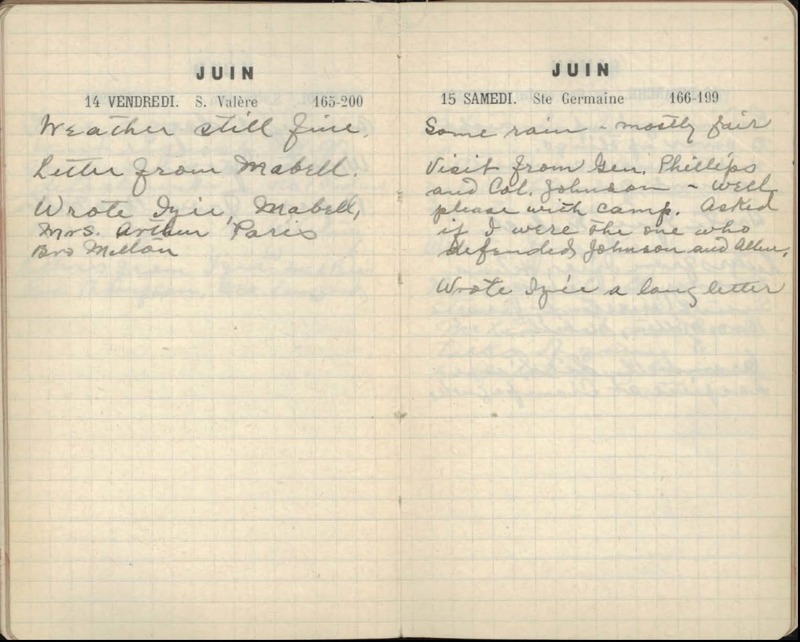 JUIN
14 VENDREDI. S. Valère 165-200
Weather still fine.
Letter from Mabell.
Wrote Izie, Mabell,
Mrs. Arthur Paris
Bro Melton
JUIN
15 SAMEDI. Ste Germaine 166-199
Some rain - mostly fair
Visit from Gen. Phillips
and Col. Johnson - well
please with camp. Asked
if I were the one who
defended Johnson and Allen.
Wrote Izie a long letter